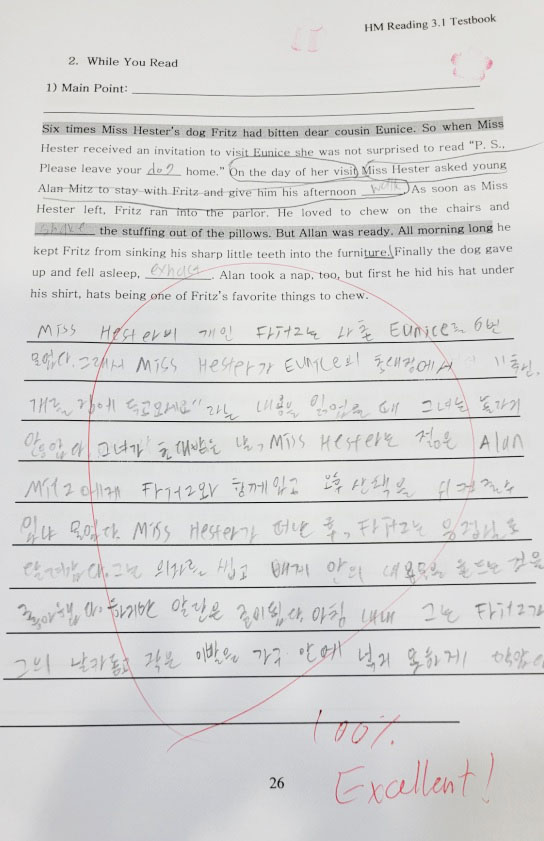 HM Reading 3.1 Testbook
2. While You Read
1) Main Point:
Six times Miss Hester's dog Fritz had bitten dear cousin Eunice. So when Miss
Hester received an invitation to visit Eunice she was not surprised to read "P. S.,
Please leave your dog home." On the day of her visit, Miss Hester asked young
Alan Mitz to stay with Fritz and give him his afternoon walk. As soon as Miss
Hester left, Fritz ran into the parlor. He loved to chew on the chairs and
shake the stuffing out of the pillows. But Allan was ready. All morning long he
kept Fritz from sinking his sharp little teeth into the furniture. Finally the dog gave
up and fell asleep, . Alan took a nap, too, but first he hid his hat under
his shirt, hats being one of Fritz's favorite things to chew.
Miss Hester의 개인 Fritz는 사촌 Eunice를 6번
물었다. 그래서 Miss Hester가 Eunice의 초대장에서
개를 집에 두고오세요" 라는 내용을 읽었을 때 그녀는 놀라지
않았다. 그녀가 초대받은 날, Miss Hester는 젊은 Alan
Mitz에게 Fritz와 함께있고 오후 산책을
물었다. Miss Hester가 떠난 후, Fritz는 응접실로
달려갔다. 그는 의자를 씹고 베개 안의 내용물을 흔드는 것을
좋아했다. 하지만 알란은 준비됐다. 아침 내내 그는 Fritz가
그의 날카롭고 작은 이빨을 가구 안에 넣지 못하게
100%
Excellent!
26